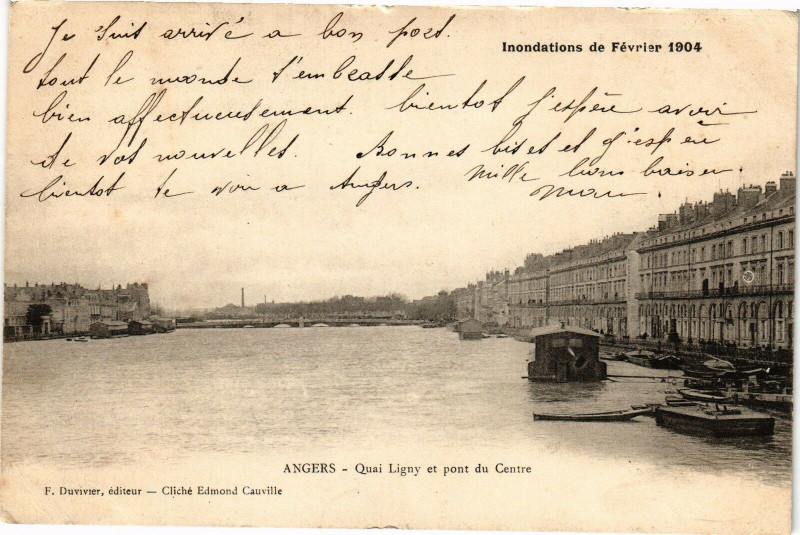 Je suit arrivé a bon port.
Inondations de Février 1904
tout le monde t'embrasse
bien affectueusement. bientot j'espère avoir
de vos nouvelles. Bonnes bises et j'espère
bientot te voir a Angers. Mille bons baiser
ANGERS - Quai Ligny et pont du Centre
F. Duvivier, éditeur — Cliché Edmond Cauville